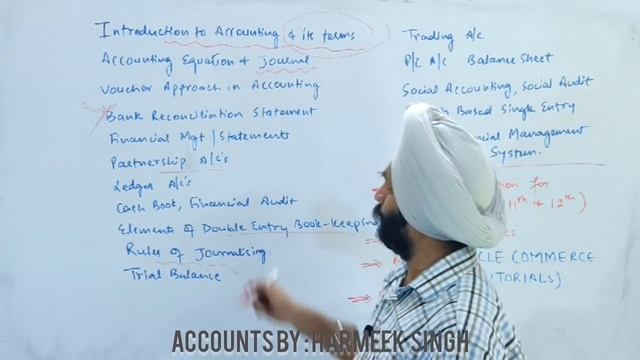 Introduction to Accounting & its terms
Accounting Equation & Journal
Voucher Approach in Accounting
Bank Reconciliation Statement
Financial Mgt / Statements
Partnership A/c's
Ledger A/c's
Cash Book, Financial Audit
Elements of Double Entry Book-Keeping
Rules of Journalising
Trial Balance
Trading A/c
P/L A/c Balance Sheet
Social Accounting, Social Audit
Based Single Entry
Management
System.
for
11th & 12th)
COMMERCE
ACCOUNTS BY : HARMEEK SINGH